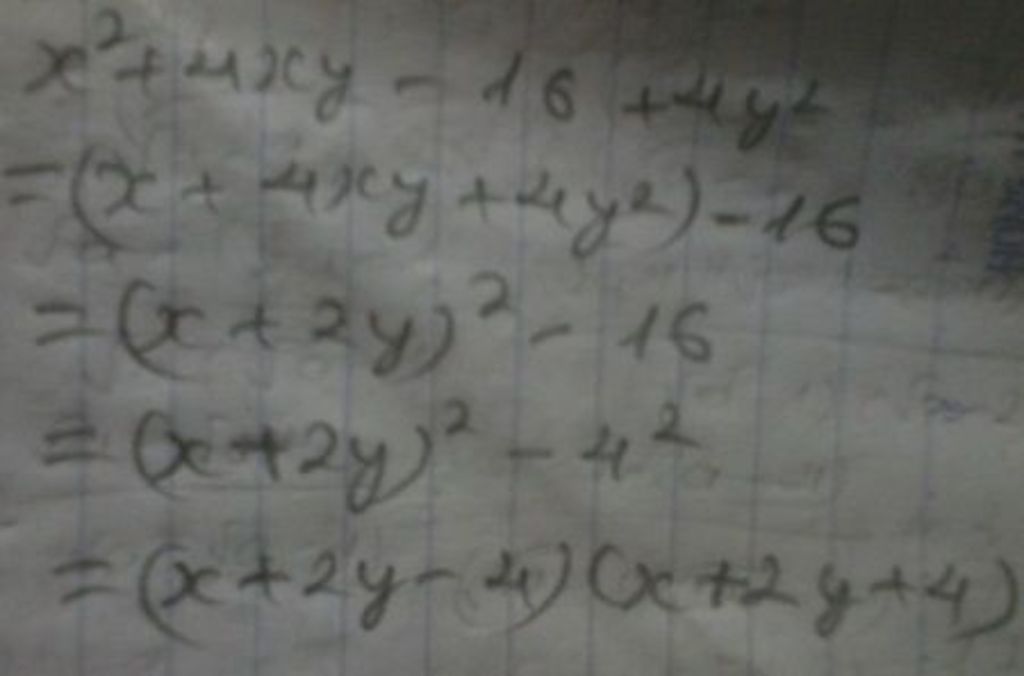 x² + 4xy - 16 + 4y²
= (x + 4xy + 4y²) - 16
= (x + 2y)² - 16
= (x + 2y)² - 4²
= (x + 2y - 4)(x + 2y + 4)